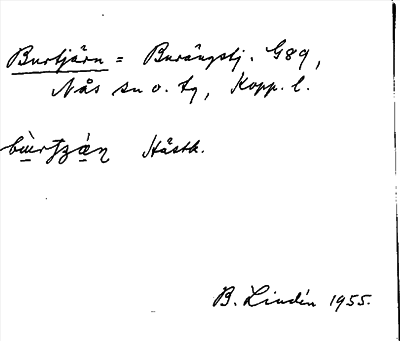 Burtjärn = Burängstj. G89,
Nås sn o. tg, Kopp. l.
Hästb.
B. Lindén 1955.